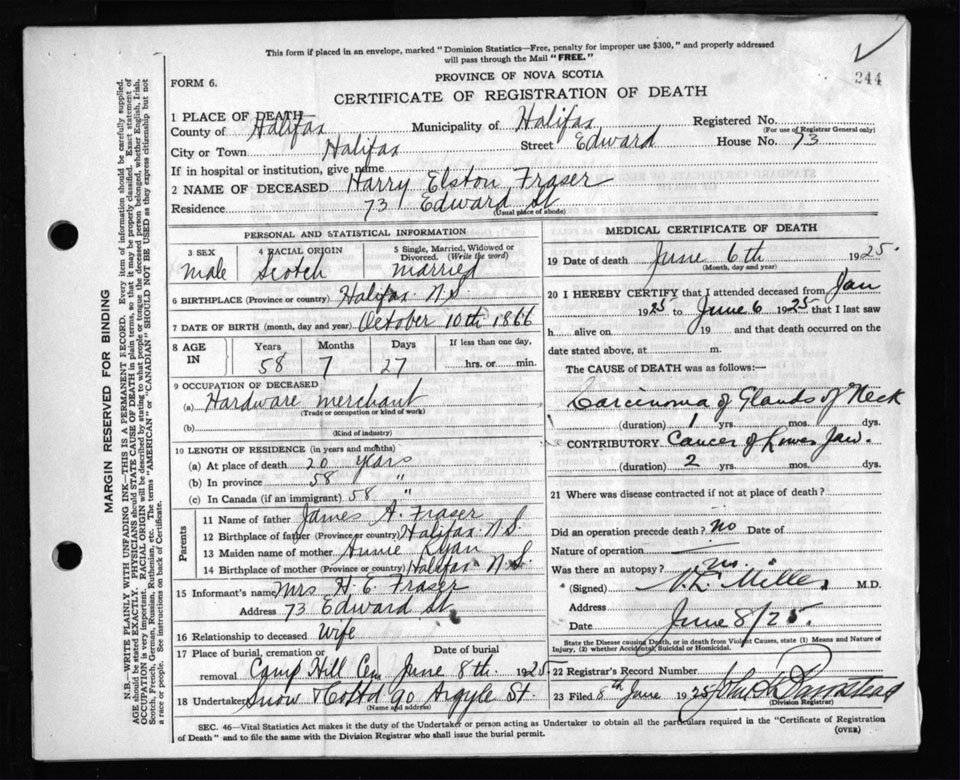 This form if placed in an envelope, marked "Dominion Statistics—Free, penalty for improper use $300," and properly addressed
will pass through the Mail "FREE."
244
PROVINCE OF NOVA SCOTIA
FORM 6.
CERTIFICATE OF REGISTRATION OF DEATH
1 PLACE OF DEATH
County of Halifax Municipality of Halifax Registered No.
(For use of Registrar General only)
City or Town Halifax Street Edward House No. 73
If in hospital or institution, give name
2 NAME OF DECEASED Harry Elston Fraser
Residence 73 Edward St
(Usual place of abode)
PERSONAL AND STATISTICAL INFORMATION
3 SEX 4 RACIAL ORIGIN 5 Single, Married, Widowed or
Divorced. (Write the word)
Male Scotch Married
6 BIRTHPLACE (Province or country) Halifax N.S.
7 DATE OF BIRTH (month, day and year) October 10th 1866
8 AGE IN Years Months Days If less than one day,
58 7 27 hrs. or min.
9 OCCUPATION OF DECEASED
(a) Hardware merchant
(Trade or occupation or kind of work)
(b)
(Kind of industry)
10 LENGTH OF RESIDENCE (in years and months)
(a) At place of death 20 years
(b) In province 58 "
(c) In Canada (if an immigrant) 58 "
Parents
11 Name of father James A. Fraser
12 Birthplace of father (Province or country) Halifax N.S.
13 Maiden name of mother Annie Ryan
14 Birthplace of mother (Province or country) Halifax N.S.
15 Informant's name Mrs H. E Fraser
Address 73 Edward St.
16 Relationship to deceased Wife
17 Place of burial, cremation or Date of burial
removal Camp Hill Cem June 8th. 1925.
18 Undertaker Snow & Co Ltd 90 Argyle St.
(Name and address)
MEDICAL CERTIFICATE OF DEATH
19 Date of death June 6th 1925.
(Month, day and year)
20 I HEREBY CERTIFY that I attended deceased from Jan
1925 to June 6 1925 that I last saw
h alive on 19 and that death occurred on the
date stated above, at m.
The CAUSE of DEATH was as follows:—
Carcinoma of Glands of Neck
(duration) 1 yrs. mos. dys.
CONTRIBUTORY Cancer of Lower Jaw.
(duration) 2 yrs. mos. dys.
21 Where was disease contracted if not at place of death?
Did an operation precede death? no Date of
Nature of operation
Was there an autopsy? no.
(Signed) Miller M.D.
Address
Date June 8/25.
State the Disease causing Death, or in death from Violent Causes, state (1) Means and Nature of
Injury, (2) whether Accidental, Suicidal or Homicidal.
22 Registrar's Record Number
23 Filed 8th June 1925
(Division Registrar)
SEC. 46—Vital Statistics Act makes it the duty of the Undertaker or person acting as Undertaker to obtain all the particulars required in the "Certificate of Registration
of Death" and to file the same with the Division Registrar who shall issue the burial permit.
(OVER)
MARGIN RESERVED FOR BINDING
N.B.—WRITE PLAINLY WITH UNFADING INK—THIS IS A PERMANENT RECORD. Every item of information should be carefully supplied.
AGE should be stated EXACTLY. PHYSICIANS should STATE CAUSE OF DEATH in plain terms, so that it may be properly classified. Exact statement of
OCCUPATION is very important. RACIAL ORIGIN will be described by stating to what people or tongue the deceased person belonged, whether English, Irish,
Scotch, French, German, Russian, Ruthenian, etc. The terms "AMERICAN" or "CANADIAN" SHOULD NOT BE USED as they express citizenship but not
a race or people. See instructions on back of Certificate.